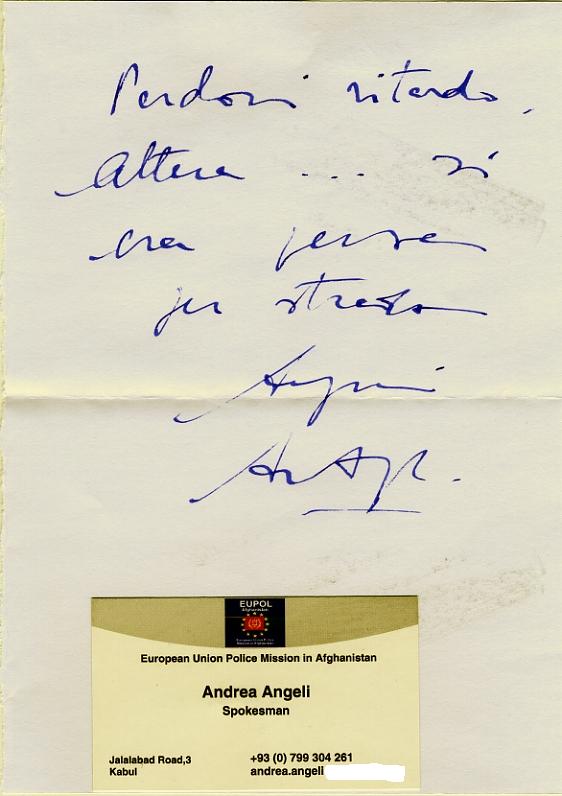 Perdoni ritardo,
... si
era persa
per strada
Auguri
EUPOL
Afghanistan
European Union Police Mission in Afghanistan
Andrea Angeli
Spokesman
Jalalabad Road,3
Kabul
+93 (0) 799 304 261
andrea.angeli